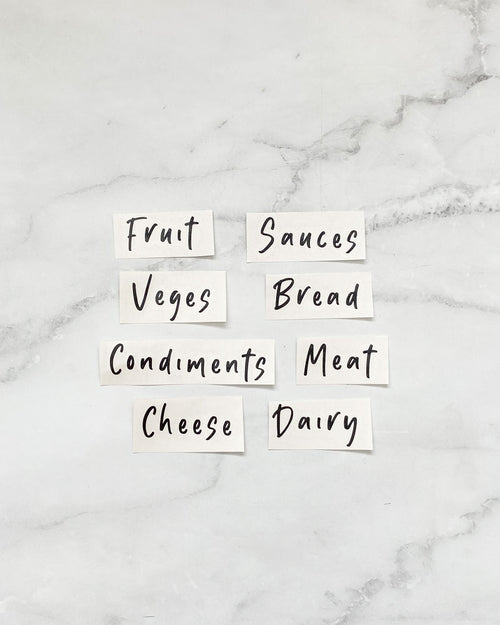 Fruit Sauces
Veges Bread
Condiments Meat
Cheese Dairy